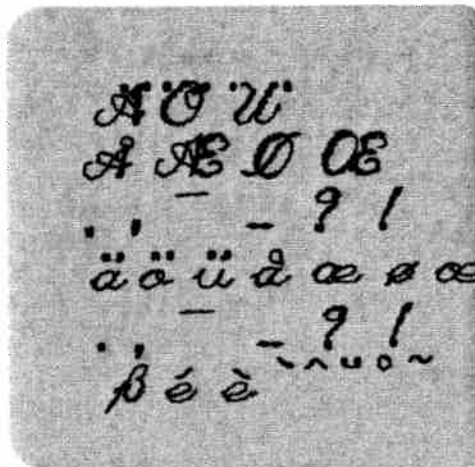 Ä Ö Ü
Å Æ Ø Œ
. , ¯ _ ? !
ä ö ü å æ ø œ
. , ¯ _ ? !
ß é è ` ^ ˘ ° ~